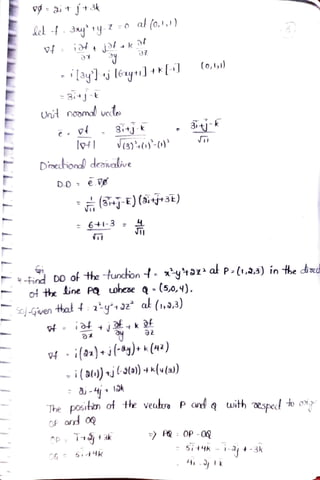 ∇φ = 2i + j + 3k
let f = 3xy² + y - z = 0 at (0,1,1)
∇f = i ∂f/∂x + j ∂f/∂y + k ∂f/∂z
= i[3y²] + j[6xy+1] + k[-1] (0,1,1)
= 3i + j - k
Unit normal vector
e = ∇f/|∇f| = 3i+j-k/√(3)²+(1)²-(1)² = 3i+j-k/√11
Directional derivative
D.D = e · ∇φ
= 1/√11 (3i+j-k)(2i+j+3k)
= 6+1-3/√11 = 4/√11
Find DD of the function f = x²-y²+2z² at P = (1,2,3) in the
of the line PQ where Q = (5,0,4).
Sol- Given that f = x²-y²+2z² at (1,2,3)
∇f = i ∂f/∂x + j ∂f/∂y + k ∂f/∂z
∇f = i(2x) + j(-2y) + k(4z)
= i(2(1)) + j(-2(2)) + k(4(3))
= 2i - 4j + 12k
The position of the vectors P and Q with respect to
OP and OQ
OP = i + 2j + 3k ⇒ PQ = OP - OQ
OQ = 5i + 4k = 5i + 4k - i - 2j + -3k
= 4i - 2j + k